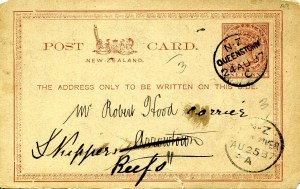 POST CARD.
NEW ZEALAND.
N·Z
QUEENSTOWN
24 AU 97
C
THE ADDRESS ONLY TO BE WRITTEN ON THIS SIDE.
3
Mr Robert Wood Carrier
Arrowtown
Skippers
Reefs
N·Z
AU 25 97
A